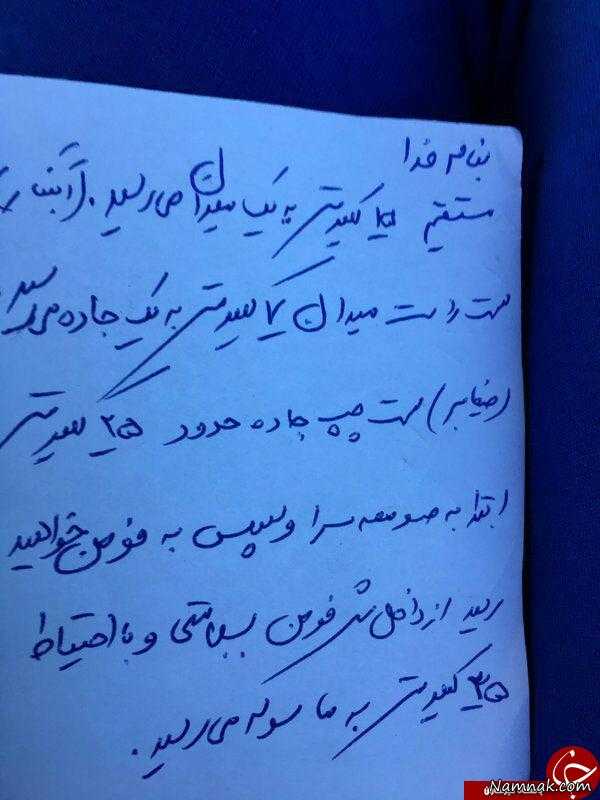 بنام خدا
مستقیم کیلومتر به یک میدان می رسید . (آبنما
سمت راست میدان ۷ کیلومتر به یک جاده می رسید
(ضیابر) سمت چپ جاده حدود ۲۵ کیلومتر
ابتدا به صومعه سرا و سپس به فومن خواهید
رسید از داخل شهر فومن بسلامتی و با احتیاط
۳۵ کیلومتر به ماسوله می رسید .
Namnak.com